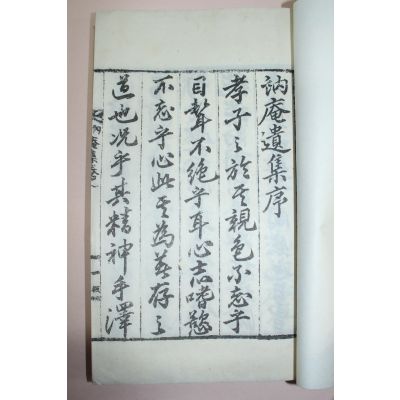 訥庵遺集序
孝子之於其親色不忘乎
目聲不絶乎耳心志嗜慾
不忘乎心此其為著存之
道也况乎其精神手澤
訥庵集序
一